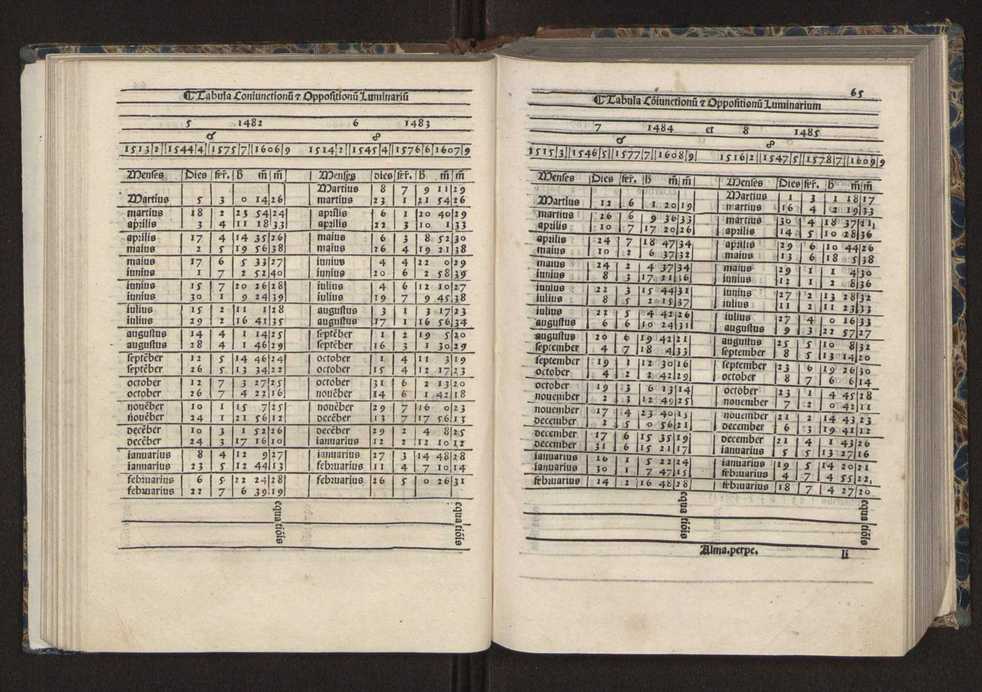 ¶Tabula Coniunctionũ ⁊ Oppositionũ Luminariũ
5 1482 6 1483
☌ ☍
1513 2 1544 4 1575 7 1606 9 1514 2 1545 4 1576 6 1607 9
Menses Dies fer̃. H m̃ m̃ Menses dies fer̃. H m̃ m̃
Martius 8 7 9 11 29
Martius 5 3 0 14 26 martius 23 1 21 54 26
martius 18 2 23 54 24 aprilis 6 1 20 40 29
aprilis 3 4 11 18 33 aprilis 22 3 10 1 33
aprilis 17 4 14 35 26 maius 6 3 8 52 30
maius 2 5 19 56 38 maius 26 4 19 21 38
maius 17 6 5 33 27 iunius 4 4 22 0 29
iunius 1 7 2 52 40 iunius 20 6 2 58 39
iunius 15 7 20 26 28 iulius 4 6 12 10 27
iunius 30 1 9 24 39 iulius 19 7 9 45 38
iulius 15 2 11 1 28 augustus 3 1 3 17 23
iulius 29 2 16 41 35 augustus 17 1 16 56 34
augustus 14 4 1 14 25 septẽber 1 2 19 5 20
augustus 28 4 1 46 29 septẽber 16 3 1 30 29
septẽber 12 5 14 46 24 october 1 4 11 3 19
septẽber 26 5 13 34 22 october 15 4 12 17 23
october 12 7 3 27 25 october 31 6 2 13 20
october 26 7 4 22 16 nouẽber 14 6 1 42 18
nouẽber 10 1 15 7 25 nouẽber 29 7 16 0 23
nouẽber 24 1 21 56 12 decẽber 13 7 17 56 13
decẽber 10 3 1 52 26 decẽber 29 2 4 8 25
decẽber 24 3 17 16 10 ianuarius 12 2 12 10 12
ianuarius 8 4 12 9 27 ianuarius 27 3 14 48 28
ianuarius 23 5 12 44 13 februarius 11 4 7 10 14
februarius 6 5 22 24 28 februarius 26 5 0 26 31
februarius 22 7 6 39 19
equatiõis equatiõis
65
¶Tabula Cõiunctionũ ⁊ Oppositionũ Luminarium
7 1484 et 8 1485
☌ ☍
1515 3 1546 5 1577 7 1608 9 1516 2 1547 5 1578 7 1609 9
Menses Dies fer̃. H m̃ m̃ Menses Dies fer̃. H m̃ m̃
Martius 1 3 1 18 17
Martius 12 6 1 20 19 Martius 16 4 2 19 33
martius 26 6 9 36 33 martius 30 4 18 37 21
aprilis 10 7 17 20 26 aprilis 14 5 10 28 36
aprilis 24 7 18 47 34 aprilis 29 6 10 44 26
maius 10 2 6 37 32 maius 13 6 18 5 38
maius 24 2 4 37 34 maius 29 1 1 4 30
iunius 8 3 17 21 36 iunius 12 1 2 8 36
iunius 22 3 15 44 31 iunius 27 2 13 28 32
iulius 8 5 2 15 37 iulius 11 2 11 23 33
iulius 22 5 4 42 26 iulius 27 4 0 16 33
augustus 6 6 10 24 31 augustus 9 3 22 57 27
augustus 20 6 19 42 21 augustus 25 5 10 8 32
september 4 7 18 4 33 september 8 5 13 14 20
september 19 1 12 30 16 september 23 6 19 26 30
october 4 2 2 42 29 october 8 7 6 6 14
october 19 3 6 13 14 october 23 1 4 45 28
nouember 2 3 12 49 25 nouember 7 2 0 42 11
nouember 17 4 23 40 13 nouember 21 2 14 43 23
december 2 5 0 56 21 december 6 3 19 41 12
december 17 6 15 35 19 december 21 4 1 43 26
december 31 6 15 21 17 ianuarius 5 5 13 27 16
ianuarius 16 1 5 22 24 ianuarius 19 5 14 20 21
ianuarius 30 1 7 47 15 februarius 4 7 4 55 22
februarius 14 2 16 48 28 februarius 18 7 4 27 20
equatiõis equatiõis
Alma.perpe. li